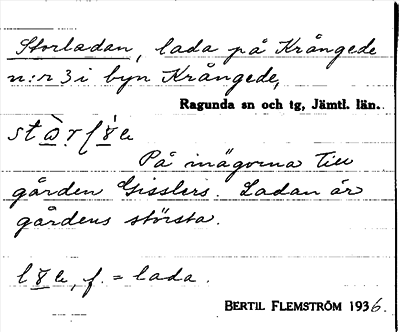 Storladan, lada på Krångede
n:r 3 i byn Krångede,
Ragunda sn och tg, Jämtl. län.
På inägorna till
gården Gisslers. Ladan är
gårdens största.
f. = lada.
BERTIL FLEMSTRÖM 1936.